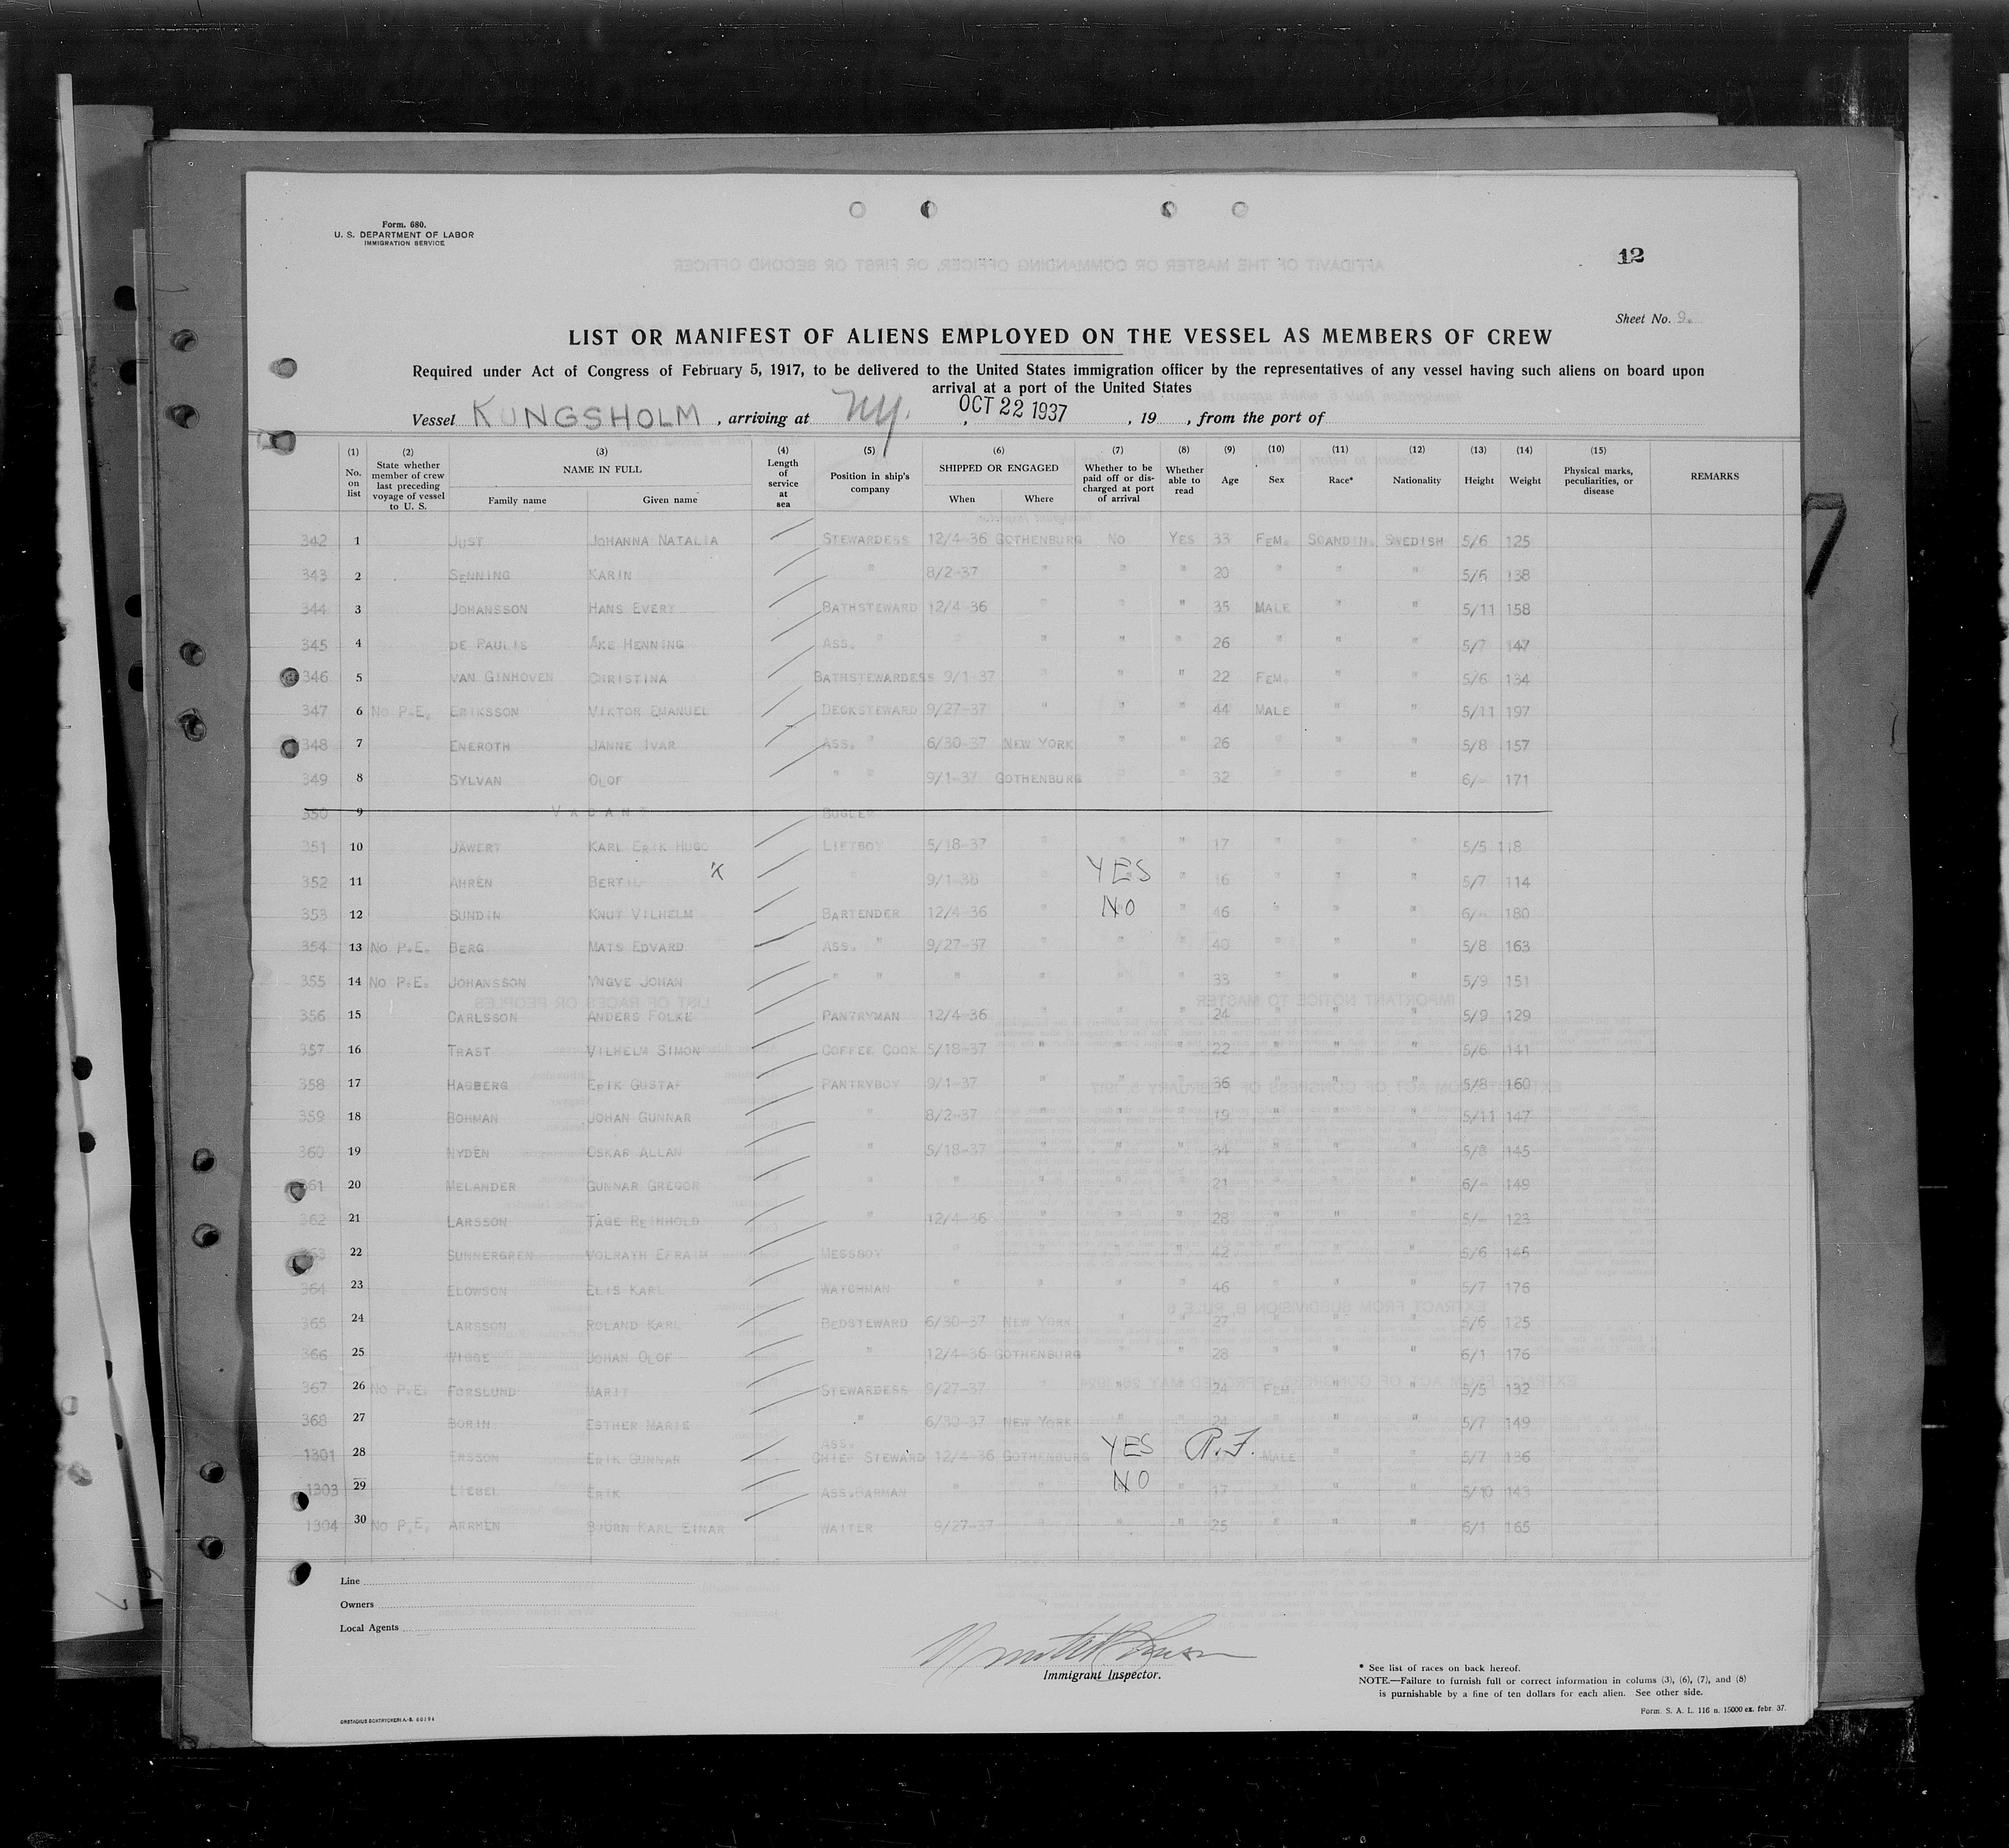 Form. 680.
U. S. DEPARTMENT OF LABOR
IMMIGRATION SERVICE
12
Sheet No. 9.
LIST OR MANIFEST OF ALIENS EMPLOYED ON THE VESSEL AS MEMBERS OF CREW
Required under Act of Congress of February 5, 1917, to be delivered to the United States immigration officer by the representatives of any vessel having such aliens on board upon
arrival at a port of the United States
Vessel KUNGSHOLM, arriving at NY., OCT 22 1937, 19 , from the port of
(1) (2) (3) (4) (5) (6) (7) (8) (9) (10) (11) (12) (13) (14) (15)
No. on list State whether member of crew last preceding voyage of vessel to U. S. NAME IN FULL Family name Given name Length of service at sea Position in ship's company SHIPPED OR ENGAGED When Where Whether to be paid off or discharged at port of arrival Whether able to read Age Sex Race* Nationality Height Weight Physical marks, peculiarities, or disease REMARKS
342 1 JUST JOHANNA NATALIA STEWARDESS 12/4-36 GOTHENBURG NO YES 33 FEM. SCANDIN. SWEDISH 5/6 125
343 2 SENNING KARIN " 8/2-37 " " " 20 " " " 5/6 138
344 3 JOHANSSON HANS EVERT BATHSTEWARD 12/4-36 " " " 35 MALE " " 5/11 158
345 4 DE PAULIS ÅKE HENNING ASS. " " " " " 26 " " " 5/7 147
346 5 VAN GINHOVEN CHRISTINA BATHSTEWARDESS 9/1-37 " " " 22 FEM. " " 5/6 134
347 6 NO P.E. ERIKSSON VIKTOR EMANUEL DECKSTEWARD 9/27-37 " " " 44 MALE " " 5/11 197
348 7 ENEROTH JANNE IVAR ASS. " 6/30-37 NEW YORK " " 26 " " " 5/8 157
349 8 SYLVAN OLOF " " 9/1-37 GOTHENBURG " " 32 " " " 6/- 171
350 9 VACANT BUGLER
351 10 JÄWERT KARL ERIK HUGO LIFTBOY 5/18-37 " " " 17 " " " 5/5 118
352 11 AHRÉN BERTIL X " 9/1-36 " YES " 16 " " " 5/7 114
353 12 SUNDIN KNUT VILHELM BARTENDER 12/4-36 " NO " 46 " " " 6/- 180
354 13 NO P.E. BERG MATS EDVARD ASS. " 9/27-37 " " " 40 " " " 5/8 163
355 14 NO P.E. JOHANSSON YNGVE JOHAN " " " " " " 33 " " " 5/9 151
356 15 CARLSSON ANDERS FOLKE PANTRYMAN 12/4-36 " " " 24 " " " 5/9 129
357 16 TRAST VILHELM SIMON COFFEE COOK 5/18-37 " " " 22 " " " 5/6 141
358 17 HAGBERG ERIK GUSTAF PANTRYBOY 9/1-37 " " " 36 " " " 5/8 160
359 18 BOHMAN JOHAN GUNNAR " 8/2-37 " " " 19 " " " 5/11 147
360 19 NYDÉN OSKAR ALLAN " 5/18-37 " " " 34 " " " 5/8 145
361 20 MELANDER GUNNAR GREGOR " " " " " 21 " " " 6/- 149
362 21 LARSSON TAGE REINHOLD " 12/4-36 " " " 28 " " " 5/- 123
363 22 SUNNERGREN VOLRATH EFRAIM MESSBOY " " " " 42 " " " 5/6 145
364 23 ELOWSON ELIS KARL WATCHMAN " " " " 46 " " " 5/7 176
365 24 LARSSON ROLAND KARL BEDSTEWARD 6/30-37 NEW YORK " " 27 " " " 5/6 125
366 25 WIGGE JOHAN OLOF " 12/4-36 GOTHENBURG " " 28 " " " 6/1 176
367 26 NO P.E. FORSLUND MARIT STEWARDESS 9/27-37 " " " 24 FEM. " " 5/5 132
368 27 BORIN ESTHER MARIE " 6/30-37 NEW YORK " " 24 " " " 5/7 149
1301 28 ERSSON ERIK GUNNAR ASS. CHIEF STEWARD 12/4-36 GOTHENBURG YES R.F. 37 MALE " " 5/7 136
1303 29 LIEBEL ERIK ASS.BARMAN " " NO " 17 " " " 5/10 143
1304 30 NO P.E. ARRHÉN BJÖRN KARL EINAR WAITER 9/27-37 " " " 25 " " " 6/1 165
Line
Owners
Local Agents
Immigrant Inspector.
* See list of races on back hereof.
NOTE.—Failure to furnish full or correct information in colums (3), (6), (7), and (8)
is purnishable by a fine of ten dollars for each alien. See other side.
Form. S. A. L. 116 n. 15000 ex. febr. 37.